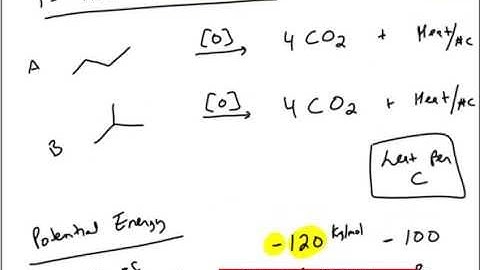 A [O] 4 CO2 + Heat/#C
B [O] 4 CO2 + Heat/#C
heat per
C
Potential Energy
-120 KJ/mol - 100